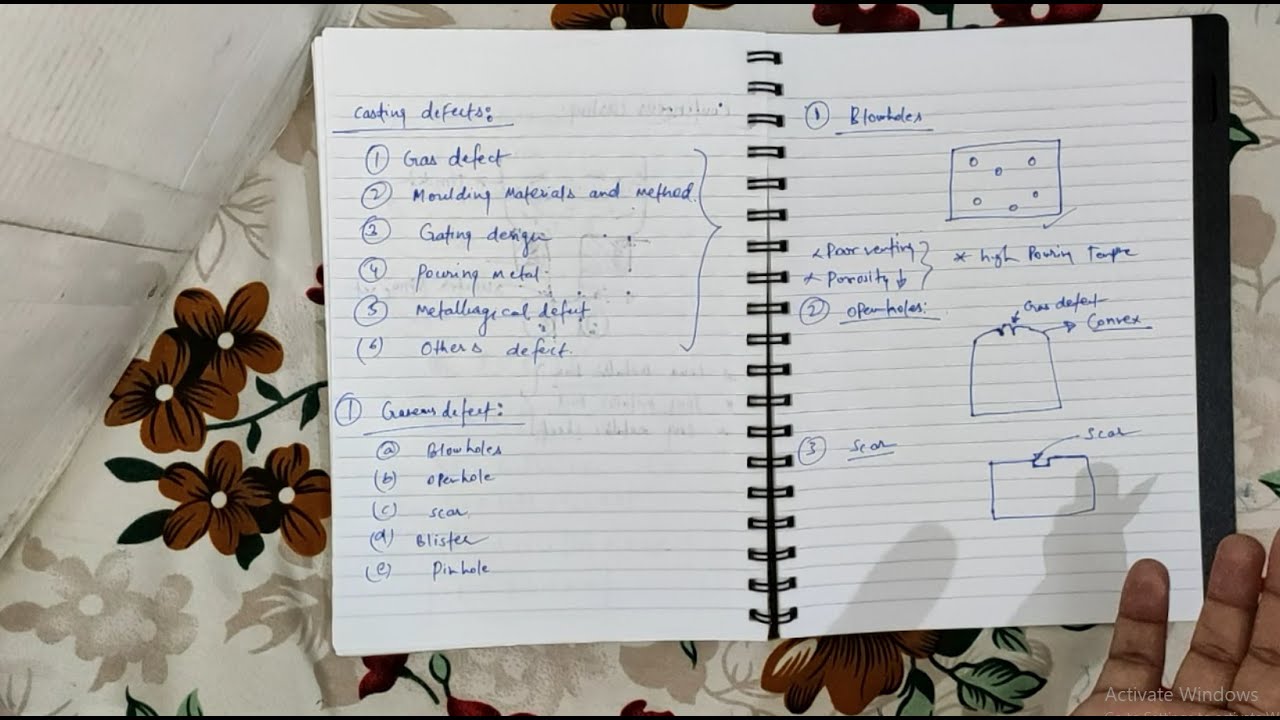 Casting defects:
① Gas defect
② Moulding Materials and method.
③ Gating design
④ Pouring metal.
⑤ Metallurgical defect
(6) Others defect.
① Gaseous defect:
(a) Blowholes
(b) openhole
(c) scar
(d) Blister
(e) Pinhole
① Blowholes
Poor venting
* high Pouring Tempe
* Porosity ↓
② openholes:
Gas defect
Convex
③ Scar
Scar
Activate Windows